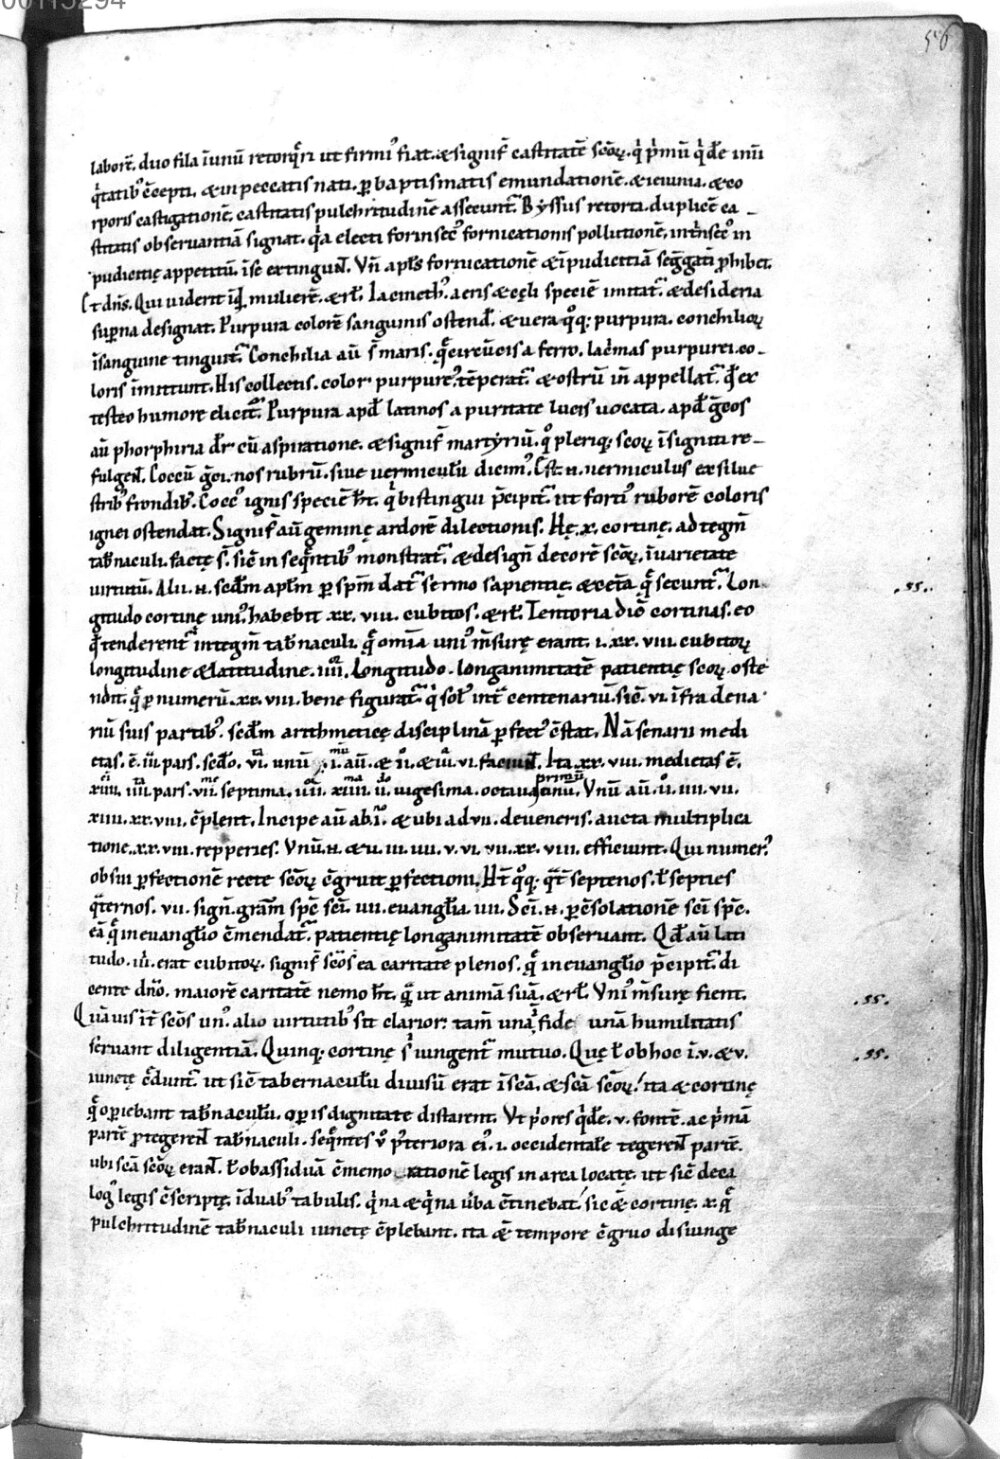 00115294
56
laborē. duo fila ī unū retorq̄ri ut firmi᾿ fiat. & signif̄ castitatē sc̄oꝝ. q̓ p̓mū q̓dē ini
q̓tatib᾿ c̄cepti. & in peccatis nati. ꝑ baptismatis emundationē. & ieiunia. & co
rporis castigationē. castitatis pulchritudinē assecunt᷑. Byssus retorta. duplicē ca
stitatis observantiā signat. q̓a electi forinsec᾿ fornicationis pollutionē. intrīsec᾿ in
pudicitię appetitū. ī se extingunt. Vn̄ apl̄s fornicationē & īpudicitiā segͣgati prohibet.
Et dn̄s. Qui viderit īq̓ mulierē. & rl̄. Iacincth᾿. aeris & cęli speciē imitat᷑. & desideria
sup̄na designat. Purpura colorē sanguinis ostend̄. & vera q̊q; purpura. conchilioꝝ
ī sanguine tinguit᷑. Conchilia aū s̄ maris. q̄ circūcisa ferro. lac̓mas purpurei co
loris īmittunt. His collectis. color purpure᾿ tēperat᷑. & ostrū in̄ appellat᷑. qđ ex
testeo humore elicit᷑. Purpura apđ latinos a puritate lucis vocata. apđ gͣcos
aū phorphiria dr̄ cū aspiratione. & signif̄ martyriū. q̊ pleriq; sc̄oꝝ īsigniti re
fulgent. Coccū gͣci. nos rubrū. sive vermiculū dicim᾿. Est n. vermiculus ex silve
strib᾿ frondib᾿. Cocc᾿ ignis speciē ht̄. q̓ bis tingui p̄cipit᷑. ut forti᾿ ruborē coloris
ignei ostendat. Signif̄ aū geminę ardorē dilectionis. Hę .x. cortinę. ad tegm̄
tab̄naculi. factę s̄. sic̄ in seq̄ntib᾿ monstrat᷑. & design̄ decorē sc̄oꝝ. ī varietate
virtutū. Alii .n. sed̄m aplm̄ ꝑ spm̄ dat᷑ sermo sapientię. & cet̄a q̄ secunt᷑. Lon
.ss.
gitudo cortinę uni᾿ habebit .xx.viii. cubitos. & rl̄. Tentoria dic̄ cortinas. eo
q̓ tenderent᷑ integm̄ tab̄naculi. q̄ omīa uni᾿ m̄surę erant. i. xx.viii. cubitoꝝ
longitudine & latitudine .iiii. Longitudo. longanimitatē patientię sc̄oꝝ. oste
ndit. q̄ ꝑ numerū .xx.viii. bene figurat᷑. q̓ sol᾿ int̄ centenariū. sic̄ .vi. īfra dena
riū suis partib᾿. sed̄m arithmeticę disciplinā ꝑfect᾿ c̄stat. Nā senarii medi
etas. ē. iii. pars. sc̄do. vi. unū .i. aū. & ii. & iii. vi. faciunt. Ita .xx.viii. medietas ē.
xiiii. iiii. pars. vii. septima. iiii. xiiii. ii. vigesima. octava primū unū. Vnū aū. ii. iiii. vii.
xiiii. xx.viii. c̄plent. Incipe aū ab .i. & ubi ad vii. deveneris. aucta multiplica
tione .xx.viii. repperies. Vnū .n. & ii. iii. iiii. v. vi. vii. xx.viii. efficiunt. Qui numer᾿
ob sui ꝑfectionē recte sc̄oꝝ c̄gruit ꝑfectioni. Ht̄ q̊q; q̄t̄ septenos. ł septies
q̄ternos. vii. sign̄. gram̄ spc̄ sc̄i. iiii. evangl̄ia. iiii. Sc̄i .n. ꝑ c̄solationē sc̄i spc̄.
eā q̄ in evangl̄io c̄mendat᷑. patientię longanimitatē observant. Qđ aū lati
tudo .iiii. erat cubitoꝝ. signif̄ sc̄os ea caritate plenos. q̄ in evangl̄io p̄cipit᷑. di
cente dn̄o. maiorē caritatē nemo ht̄. q̄ ut animā suā. & rl̄. Vni᾿ m̄surę fient.
.ss.
Quāvis īt̄ sc̄os un᾿. alio virtutib᾿ sit clarior. tam̄ unā fide unā humilitatis
servant diligentiā. Quinq; cortinę s̓ iungent᷑ mutuo. Quę ł ob hoc ī .v. & v.
.ss.
iunctę c̄dunt᷑. ut sic̄ tabernaculū divisū erat ī sc̄a. & sc̄a sc̄oꝝ. ita & cortinę
q̄ oꝑiebant tab̄naculū. oꝑis dignitate distarent. Vt p̓ores q̓dē .v. fontē. ac p̓mā
partē ꝓtegerent tab̄naculi. seq̄ntes v̓ p̓teriora ei᾿. i. occidentalē tegerent partē.
ubi sc̄a sc̄oꝝ erant. ł ob assiduā c̄memorationē legis in arca locatę. ut sic̄ deca
log᾿ legis c̄scriptę. ī duab᾿ tabulis. q̓na & q̓na v̓ba c̄tinebat. sic & cortinę .x. q̄
pulchritudinē tab̄naculi iunctę c̄plebant. ita & tempore c̄gruo disiunge